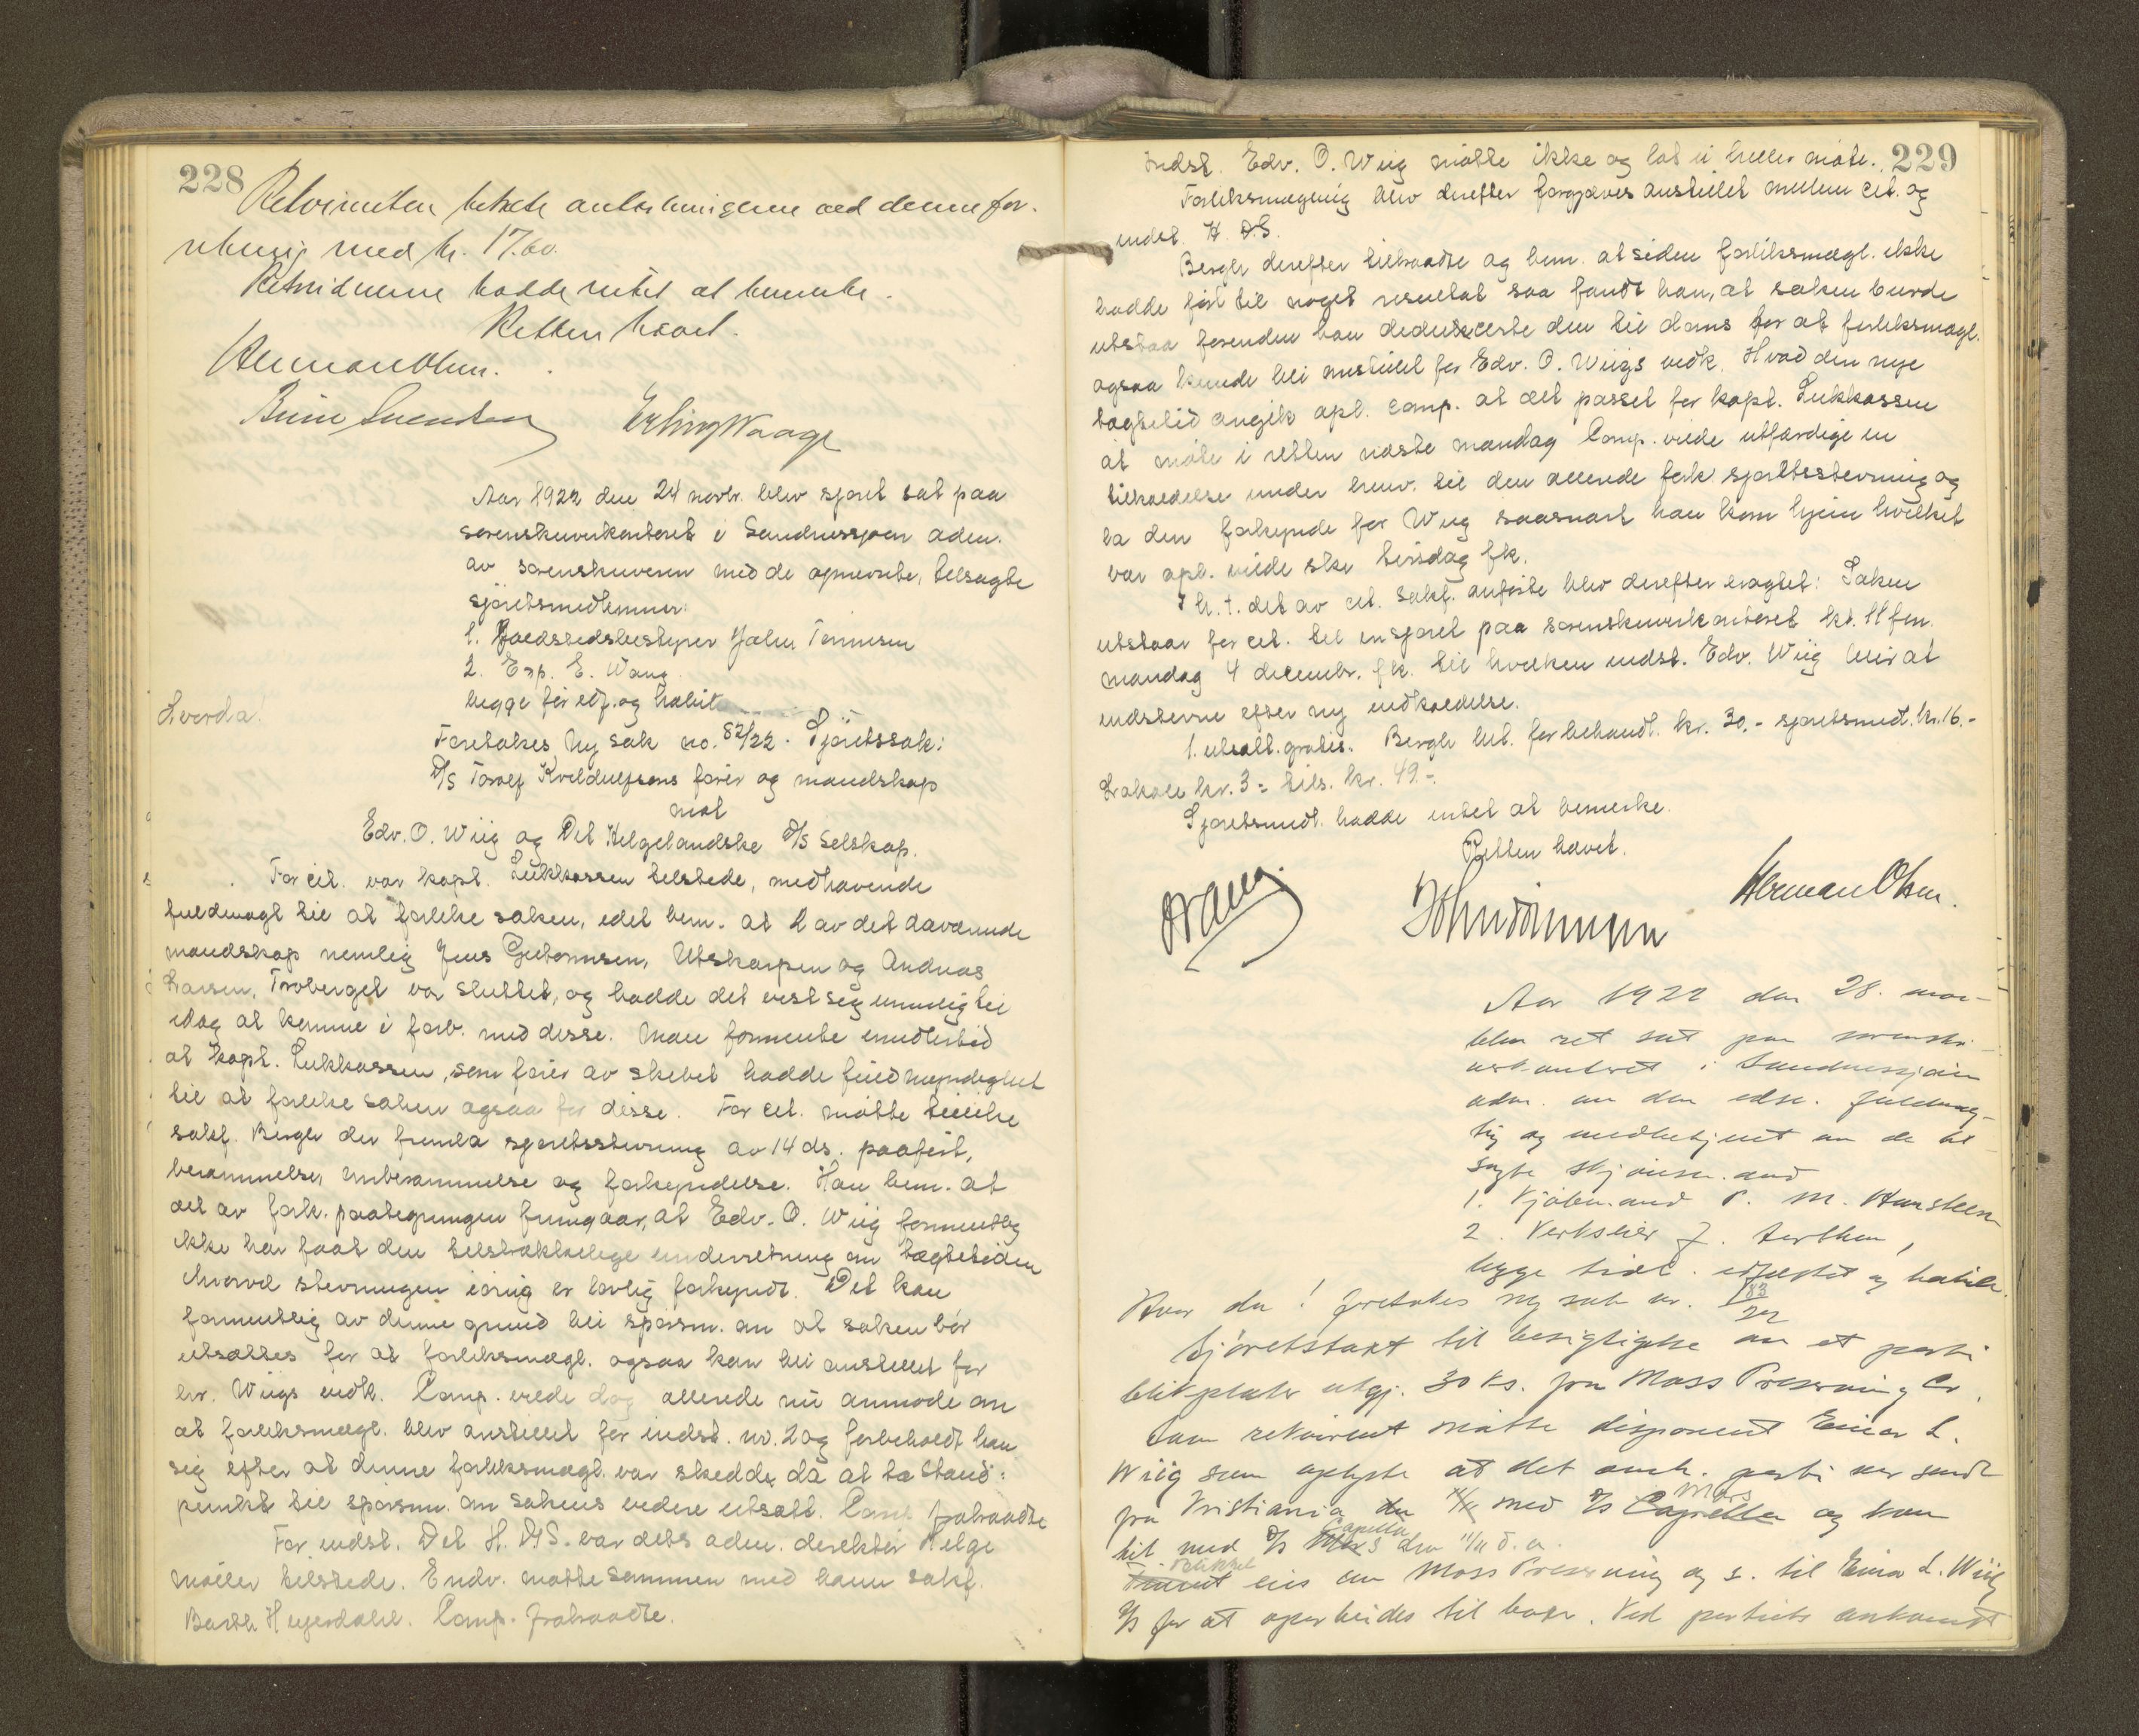 228
Rekvirenten betalte omkostningerne ved denne for-
retning med kr. 17.60.
Retsvidnerne hadde intet at bemerke.
Retten hævet.
Herman Olsen.
Svendsen Erling Waage
Aar 1922 den 24 novbr. blev sjøret sat paa
sorenskriverkontoret i Sandnessjøen adm.
av sorenskriveren med de opnævnte, tilsagte
sjøretsmedlemmer:
1. Tønnesen
2. Exp. E. Wang
begge før edf. og habile
Hvorda!
Foretokes Ny sak no. 82/22. Sjøretssak:
D/S Torolf Kveldulfsøns fører og mandskap
mot
Edv. O. Wiig og Det Helgelandske D/S selskap.
For cit. var kapt. Lukkassen tilstede, medhavende
fuldmagt til at forlike saken, idet bem. at 2 av det daværende
mandskap nemlig Jens Guttormsen, Utskarpen og Andreas
Larsen, Forberget var sluttet, og hadde det vist sig umulig til
idag at komme i forb. med disse. Man formente imidlertid
at kapt. Lukkassen, som fører av skibet hadde fuld myndighet
til at forlike saken ogsaa for disse. For cit. møtte tillike
sakf. Bergh der fremla sjøretsstevning av 14 ds. paaført,
berammelse, omberammelse og forkyndelse. Han bem. at
det av fork. paategningen fremgaar, at Edv. O. Wiig formentlig
ikke har faat den tilstrækkelige underretning om tægtetiden
hvorvel stevningen iøvrig er lovlig forkyndt. Det kan
formentlig av denne grund bli spørsm. om at saken bør
utsættes for at forliksmægl. ogsaa kan bli anstillet for
hr. Wiigs vedk. Comp. vilde dog allerede nu anmode om
at forliksmægl. blev anstillet for indst. nr. 2 og forbeholdt han
sig efter at denne forliksmægl. var skedd, da at ta stand-
punkt til spørsm. om sakens videre utsætt. Comp. fratraadte
For indst. Det H. D/S. var dets adm. direktør Helge
Møller tilstede. Endv. møtte sammen med ham sakf.
Barth Heyerdahl. Comp. fratraadte.
229
Indst. Edv. O. Wiig møtte ikke og lot ei heller møte.
Forliksmægling blev derefter forgjæves anstillet mellem cit. og
indst. H. D.S.
Bergh derefter tiltraadte og bem. at siden forliksmægl. ikke
hadde ført til noget resultat saa fandt han, at saken burde
utstaa forinden han deducerte den til doms for at forliksmægl.
ogsaa kunde bli anstillet for Edv. O. Wiigs vedk. Hvad den nye
tægtetid angik opl. comp. at det passet for kapt. Lukkassen
at møte i retten næste mandag Comp. vilde utfærdige en
tilkaldelse under henv. til den allerede fork. sjøretsstevning og
la den forkynde for Wiig saasnart han kom hjem hvilket
var opl. vilde ske tirsdag fk.
I h. t. det av cit. sakf. anførte blev derefter eragtet: Saken
utstaar for cit. til en sjøret paa sorenskriverkontoret kl. 11 fm.
mandag 4 decembr. fk. til hvilken indst. Edv. Wiig blir at
indstevne efter ny indkaldelse.
1. utsætt. gratis. Bergh bet. for behandl. kr. 30.- sjøretsmedl. kr. 16.-
Lokale kr. 3 = tils. kr. 49.-
Sjøretsmedl. hadde intet at bemerke.
Retten hævet.
Wang. Herman Olsen.
Aar 1922 den 28. nov-
blev ret sat paa sorenskri-
verkontoret i Sandnessjøen
adm. av den edsv. fuldmæg-
tig og medbetjent av de til-
sagte skjønsmænd
1. Kjøbmand P. M. Hansteen
2. Verkseier J.
begge tidl. edfæstet og habile.
Hvor da! foretokes ny sak nr. 83/22
Sjøretstakt til besigtigelse av et parti
blikplater utgj. 30 ks. fra Moss Preserving Co.
Som rekvirent møtte disponent Einar L.
Wiig som oplyste at det omh. parti var sendt
fra Kristiania med D/S Mars og kom
hit med D/S Capella den 11/11 d. a.
Blikket eies av Moss Preserving og s. til Einar L. Wiig
A/S for at oparbeides til bokse. Ved partiets ankomst